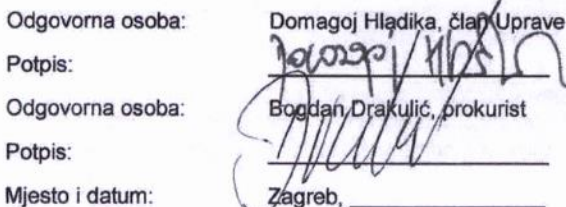 Odgovorna osoba: Domagoj Hladika, član Uprave
Potpis:
Odgovorna osoba: Bogdan Drakulić, prokurist
Potpis:
Mjesto i datum: Zagreb,